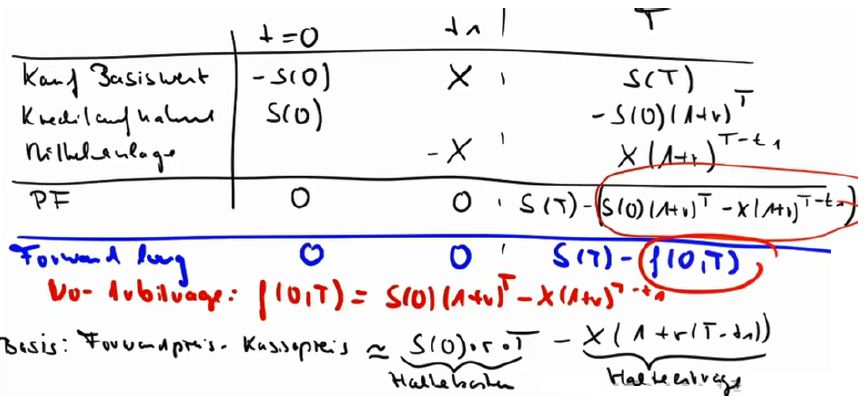 t=0 t1 T
Kauf Basiswert -S(0) X S(T)
Kreditaufnahme S(0) -S(0)(1+r)^T
Mittelanlage -X X(1+r)^{T-t1}
PF 0 0 S(T)-(S(0)(1+r)^T -X(1+r)^{T-t1})
Forward long 0 0 S(T)-f(0,T)
No-Arbitrage: f(0,T) = S(0)(1+r)^T -X(1+r)^{T-t1}
Basis: Forwardpreis-Kassapreis ≈ S(0)·r·T - X(1+r(T-t1))
Haltekosten Halteerträge